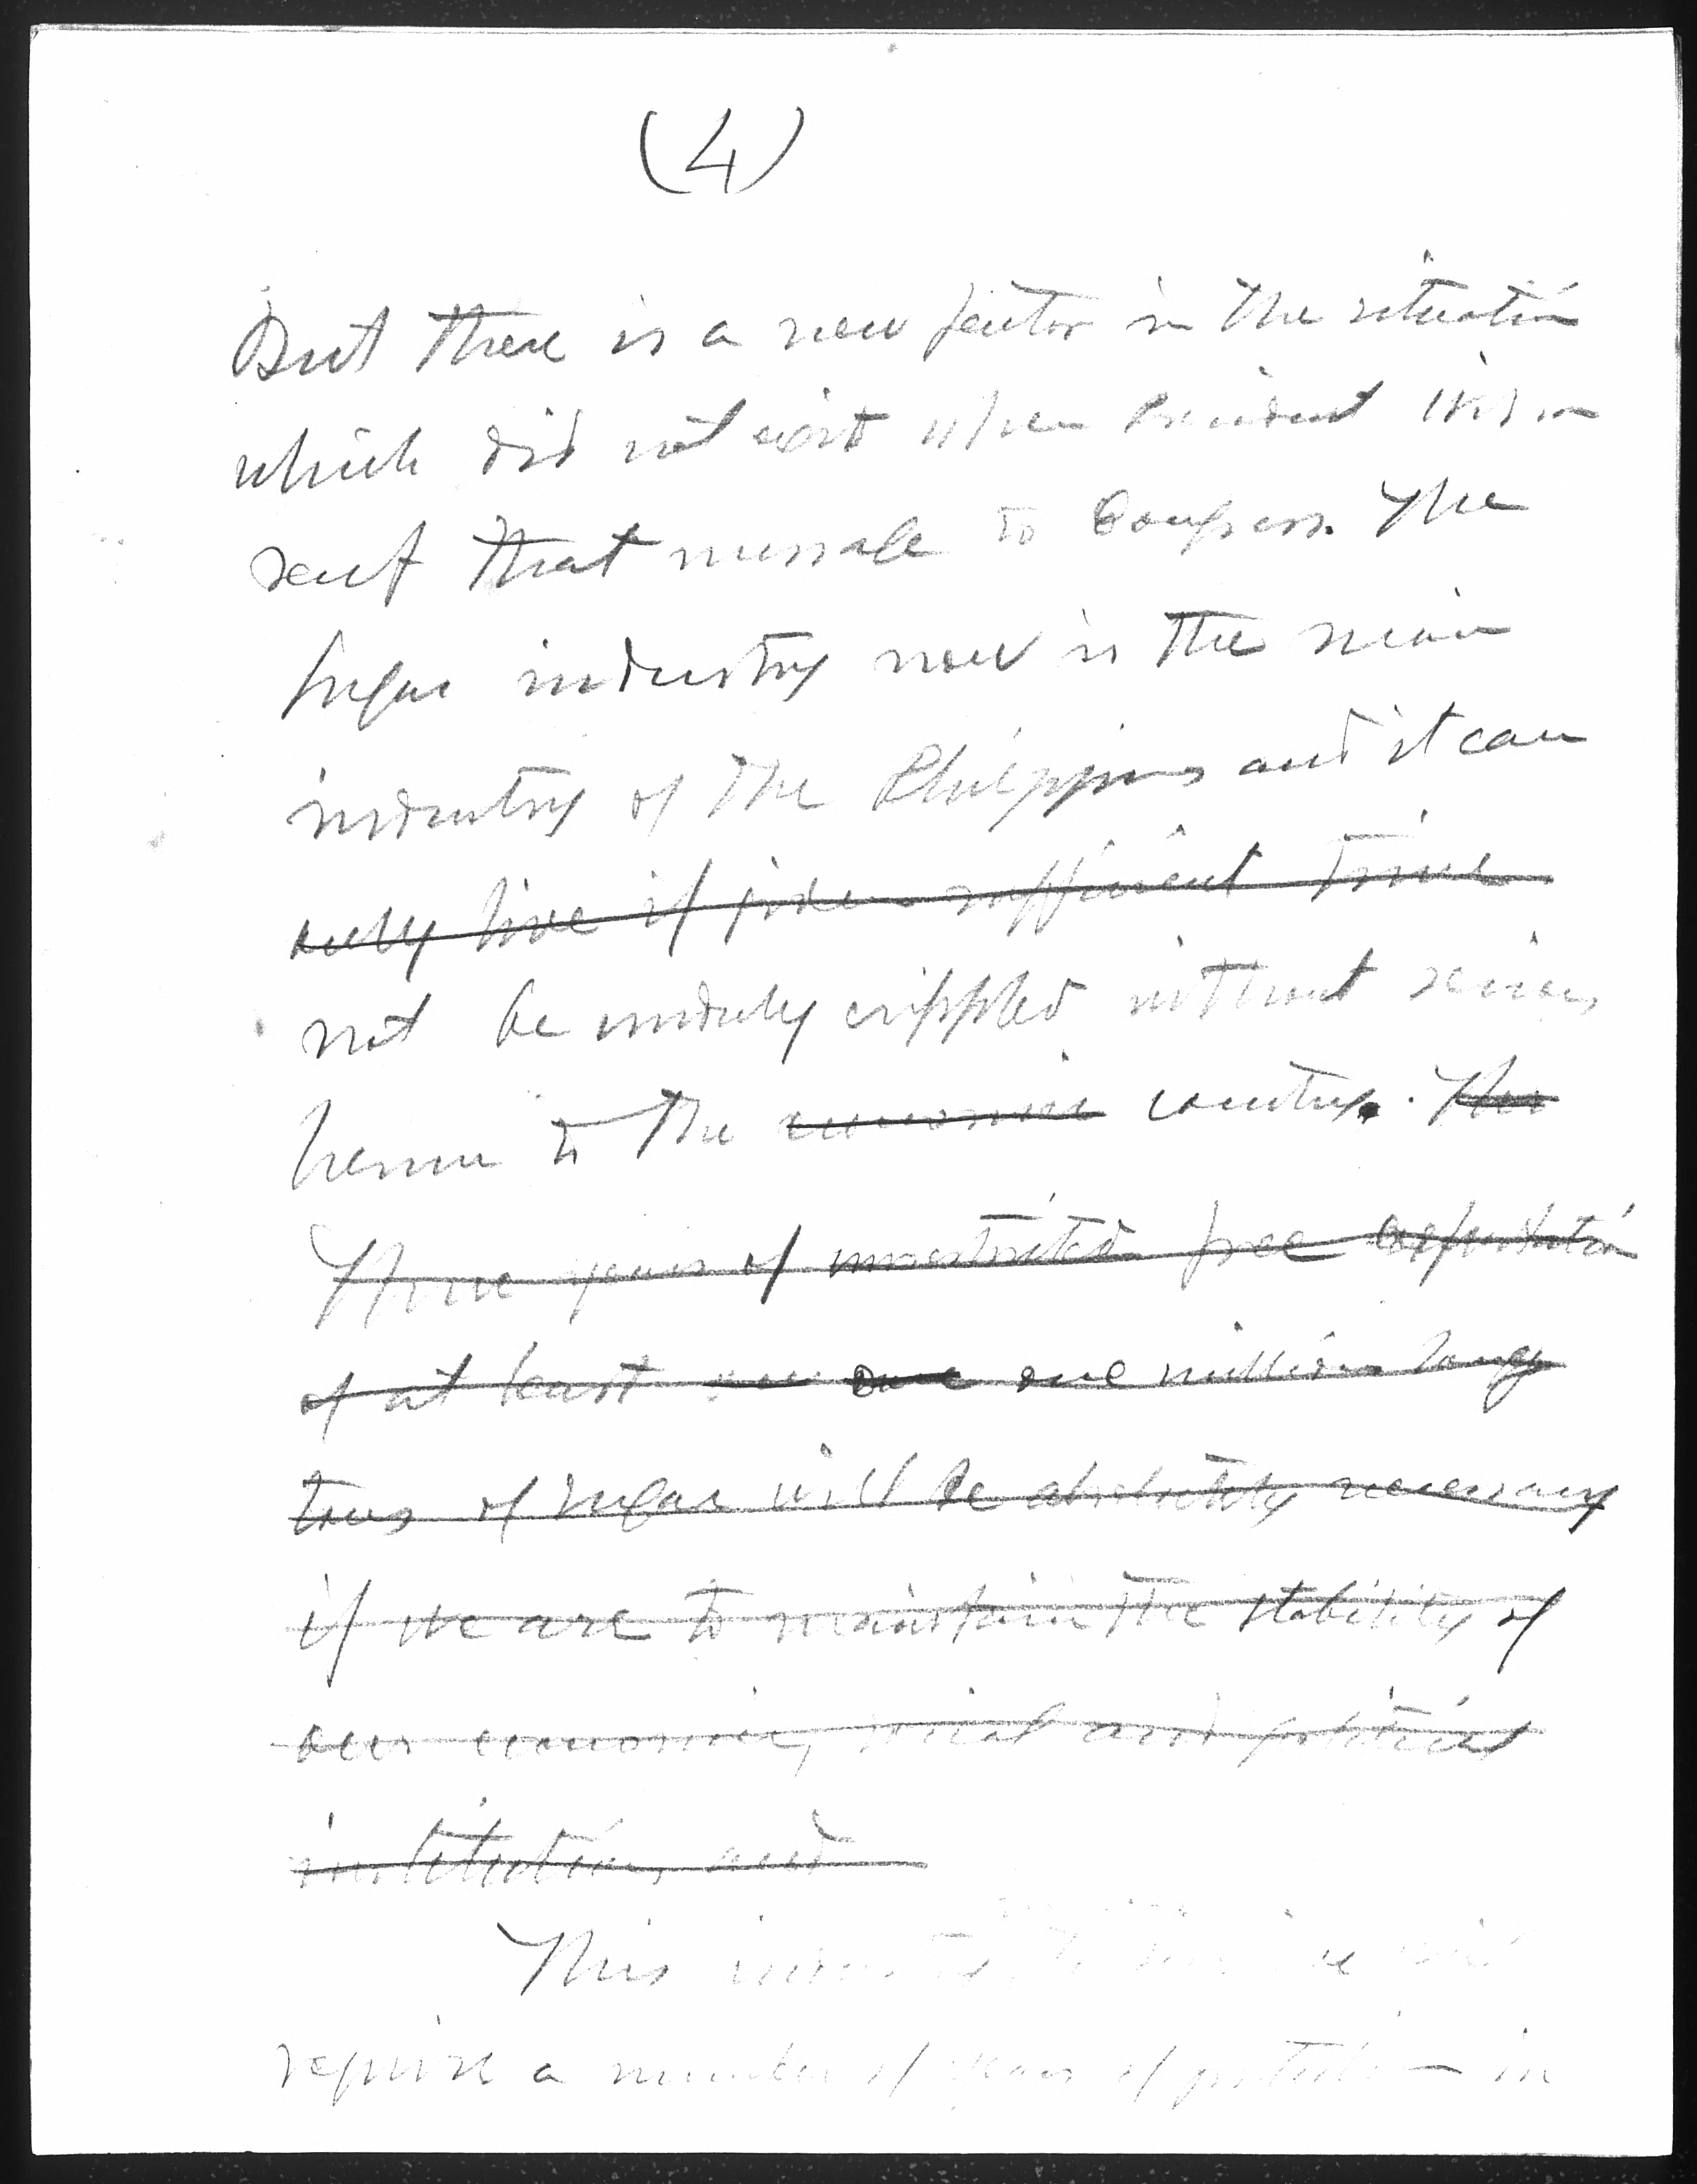 (4)
But there is a new factor in the situation
which did not exist when President Wilson
sent that message to Congress. The
sugar industry now is the main
industry of the Philippines and it can
only live if given sufficient time
not be unduly crippled without serious
harm to the economic country. The
Three years of unrestricted free exportation
of at least one one million long
tons of sugar will be absolutely necessary
if we are to maintain the stability of
our economic, social and political
institutions and
This industry to
require a number of years of protection in